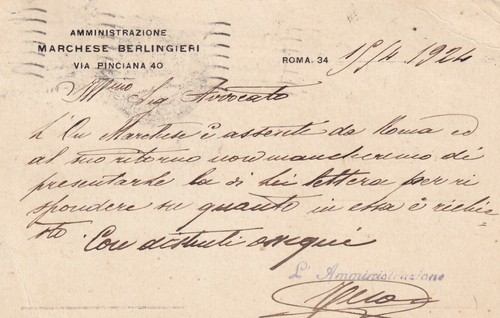 AMMINISTRAZIONE
MARCHESE BERLINGIERI
VIA PINCIANA 40
ROMA. 34 15/4 1924
Ill͞mo Sig Avvocato
L'On Marchese è assente da Roma ed
al suo ritorno non mancheremo di
presentarle la di Lei lettera per ri
spondere su quanto in essa è richie
sto. Con distinti ossequi
L'Amministrazione